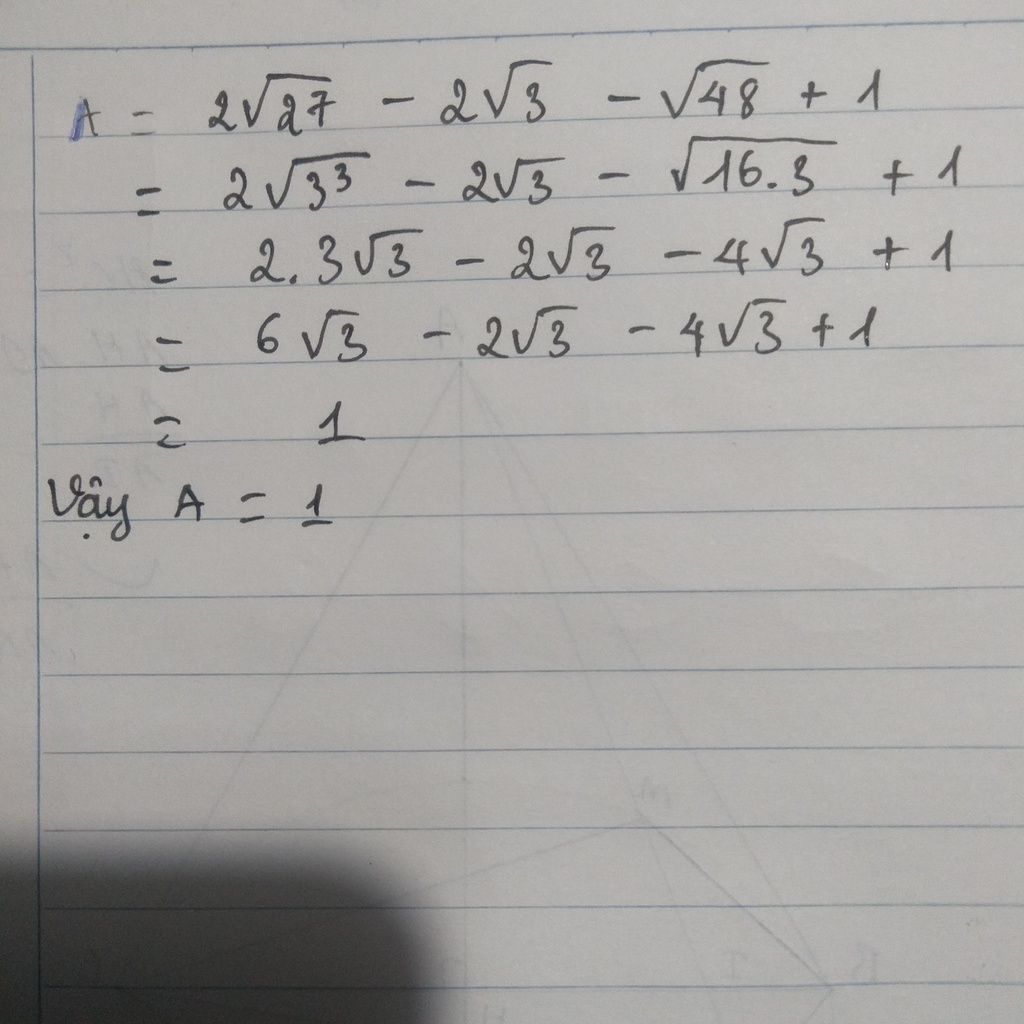 A = 2√27 - 2√3 - √48 + 1
= 2√3³ - 2√3 - √16.3 + 1
= 2.3√3 - 2√3 - 4√3 + 1
= 6√3 - 2√3 - 4√3 + 1
= 1
Vậy A = 1